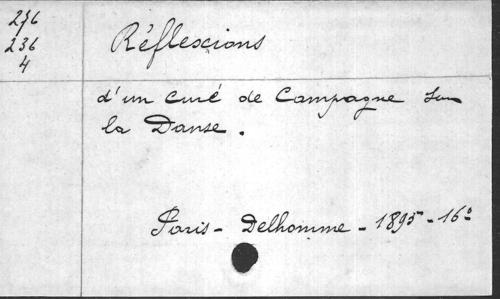 236
236
4
Réflexions
d'un Curé de Campagne sur
la Danse.
Paris - Delhomme - 1895 - 16º